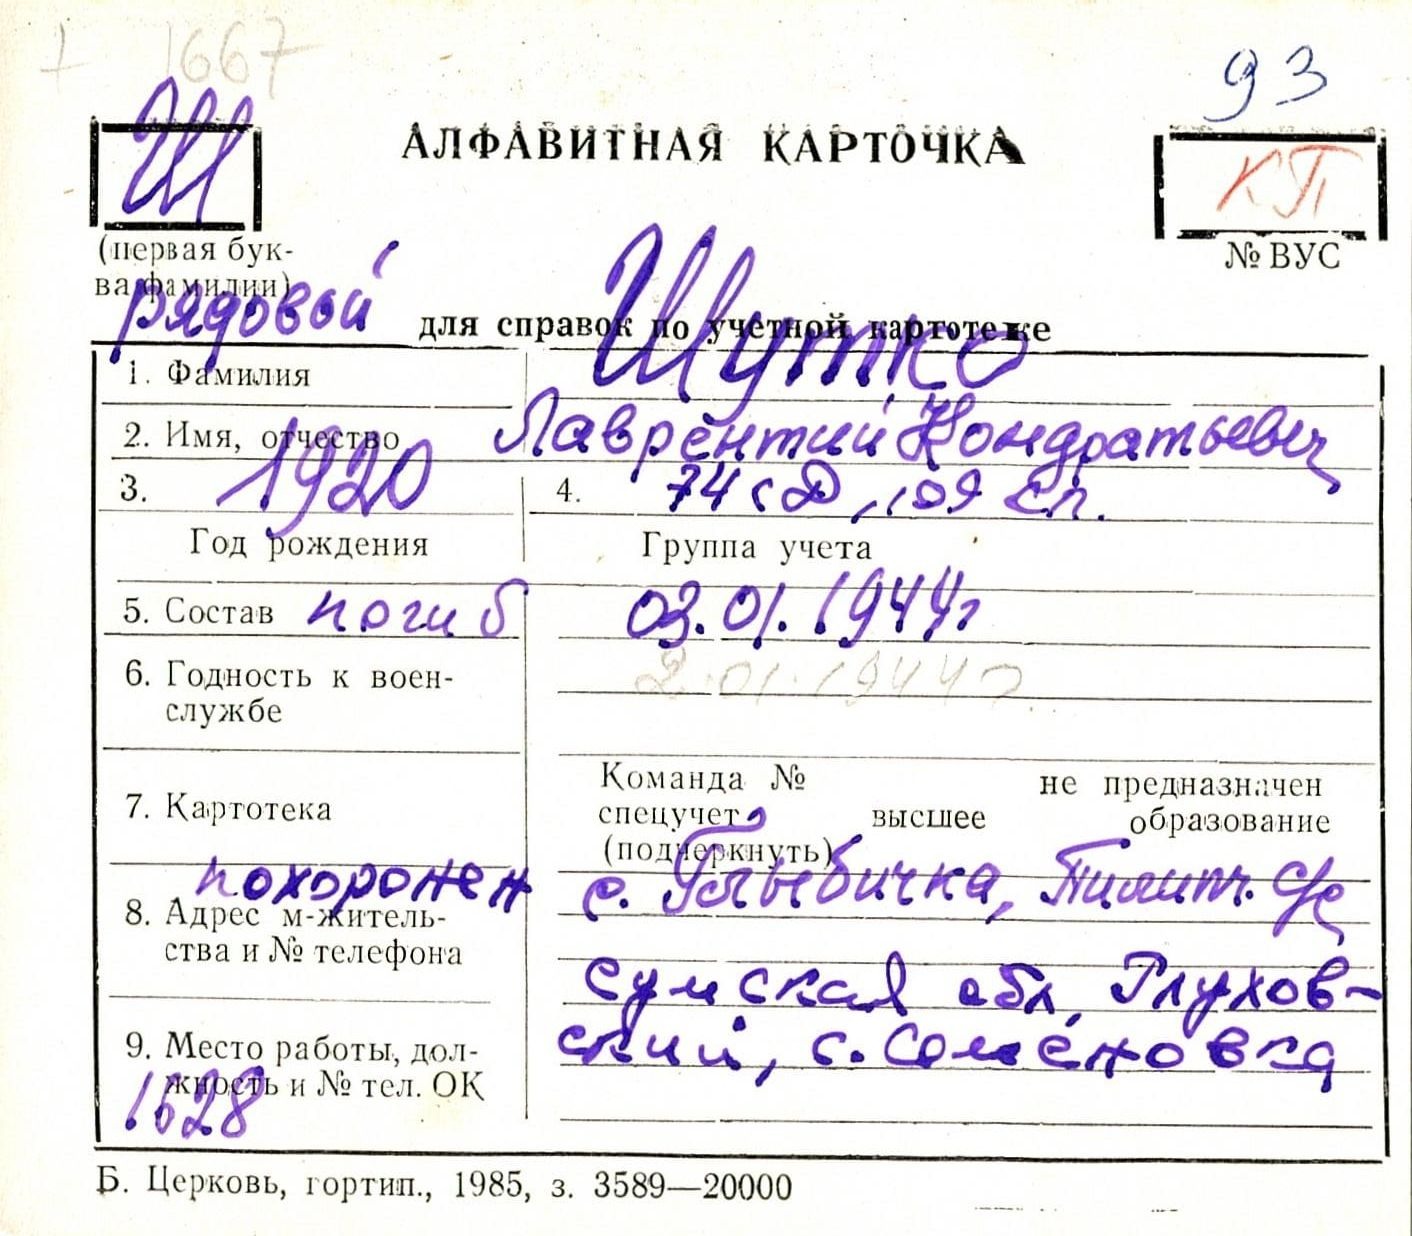 1667
93
Ш
АЛФАВИТНАЯ КАРТОЧКА
КП
(первая бук-
ва фамилии)
№ ВУС
рядовой
для справок по учетной картотеке
1. Фамилия Шутко
2. Имя, отчество Лаврентий Кондратьевич
3. 1920 4. 74 сд, 109 сп.
Год рождения Группа учета
5. Состав погиб 03.01.1944г
6. Годность к воен- 2.01.1944г.
службе
Команда № не предназначен
7. Картотека спецучет высшее образование
(подчеркнуть)
похоронен с. Глыбичка,
8. Адрес м-житель-
ства и № телефона
сумская обл, Глухов-
9. Место работы, дол- ский, с. Семёновка
жность и № тел. ОК
1628
Б. Церковь, гортип., 1985, з. 3589—20000